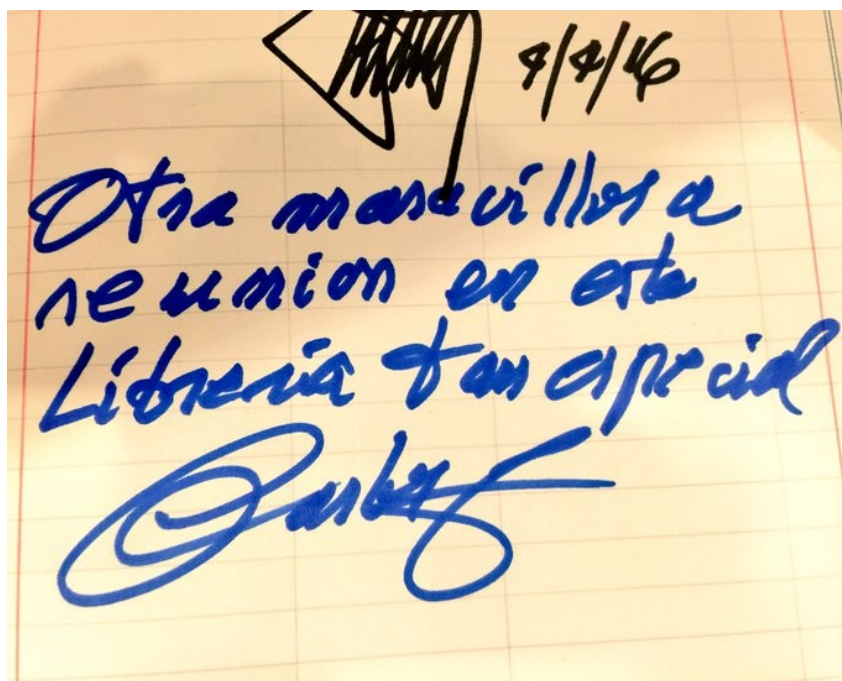 4/4/16
Otra maravillosa
reunion en esta
Librería tan especial
Carlos